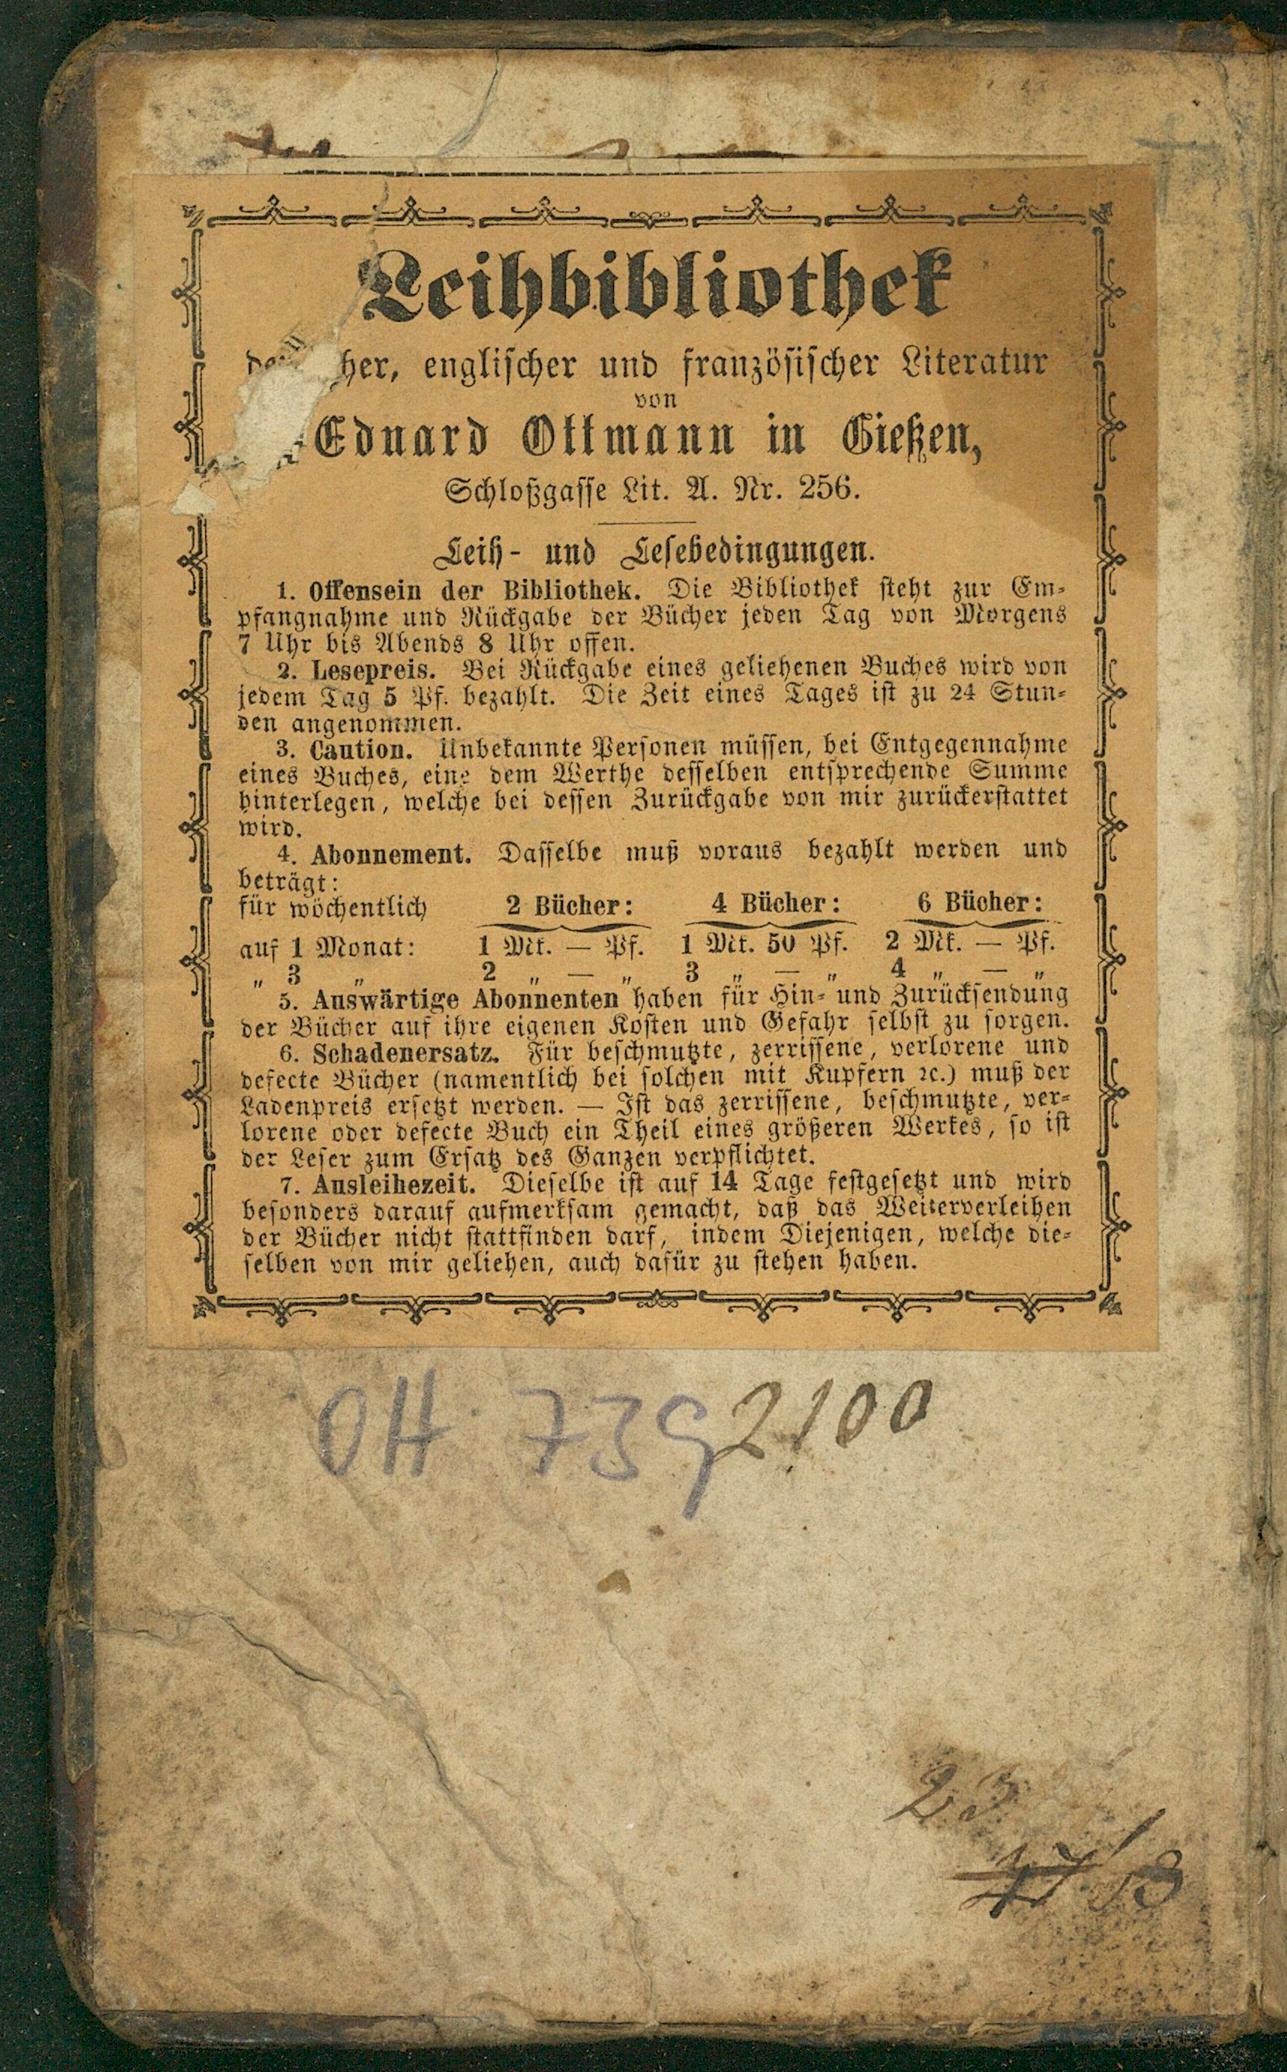 Leihbibliothek
deutscher, englischer und französischer Literatur
von
Eduard Ottmann in Gießen,
Schloßgasse Lit. A. Nr. 256.
Leih- und Lesebedingungen.
1. Offensein der Bibliothek. Die Bibliothek steht zur Em-
pfangnahme und Rückgabe der Bücher jeden Tag von Morgens
7 Uhr bis Abends 8 Uhr offen.
2. Lesepreis. Bei Rückgabe eines geliehenen Buches wird von
jedem Tag 5 Pf. bezahlt. Die Zeit eines Tages ist zu 24 Stun-
den angenommen.
3. Caution. Unbekannte Personen müssen, bei Entgegennahme
eines Buches, eine dem Werthe desselben entsprechende Summe
hinterlegen, welche bei dessen Zurückgabe von mir zurückerstattet
wird.
4. Abonnement. Dasselbe muß voraus bezahlt werden und
beträgt:
für wöchentlich 2 Bücher: 4 Bücher: 6 Bücher:
auf 1 Monat: 1 Mk. — Pf. 1 Mk. 50 Pf. 2 Mk. — Pf.
„ 3 „ 2 „ — „ 3 „ — „ 4 „ — „
5. Auswärtige Abonnenten haben für Hin- und Zurücksendung
der Bücher auf ihre eigenen Kosten und Gefahr selbst zu sorgen.
6. Schadenersatz. Für beschmutzte, zerrissene, verlorene und
defecte Bücher (namentlich bei solchen mit Kupfern ꝛc.) muß der
Ladenpreis ersetzt werden. — Ist das zerrissene, beschmutzte, ver-
lorene oder defecte Buch ein Theil eines größeren Werkes, so ist
der Leser zum Ersatz des Ganzen verpflichtet.
7. Ausleihezeit. Dieselbe ist auf 14 Tage festgesetzt und wird
besonders darauf aufmerksam gemacht, daß das Weiterverleihen
der Bücher nicht stattfinden darf, indem Diejenigen, welche die-
selben von mir geliehen, auch dafür zu stehen haben.
OH 739 2100
23